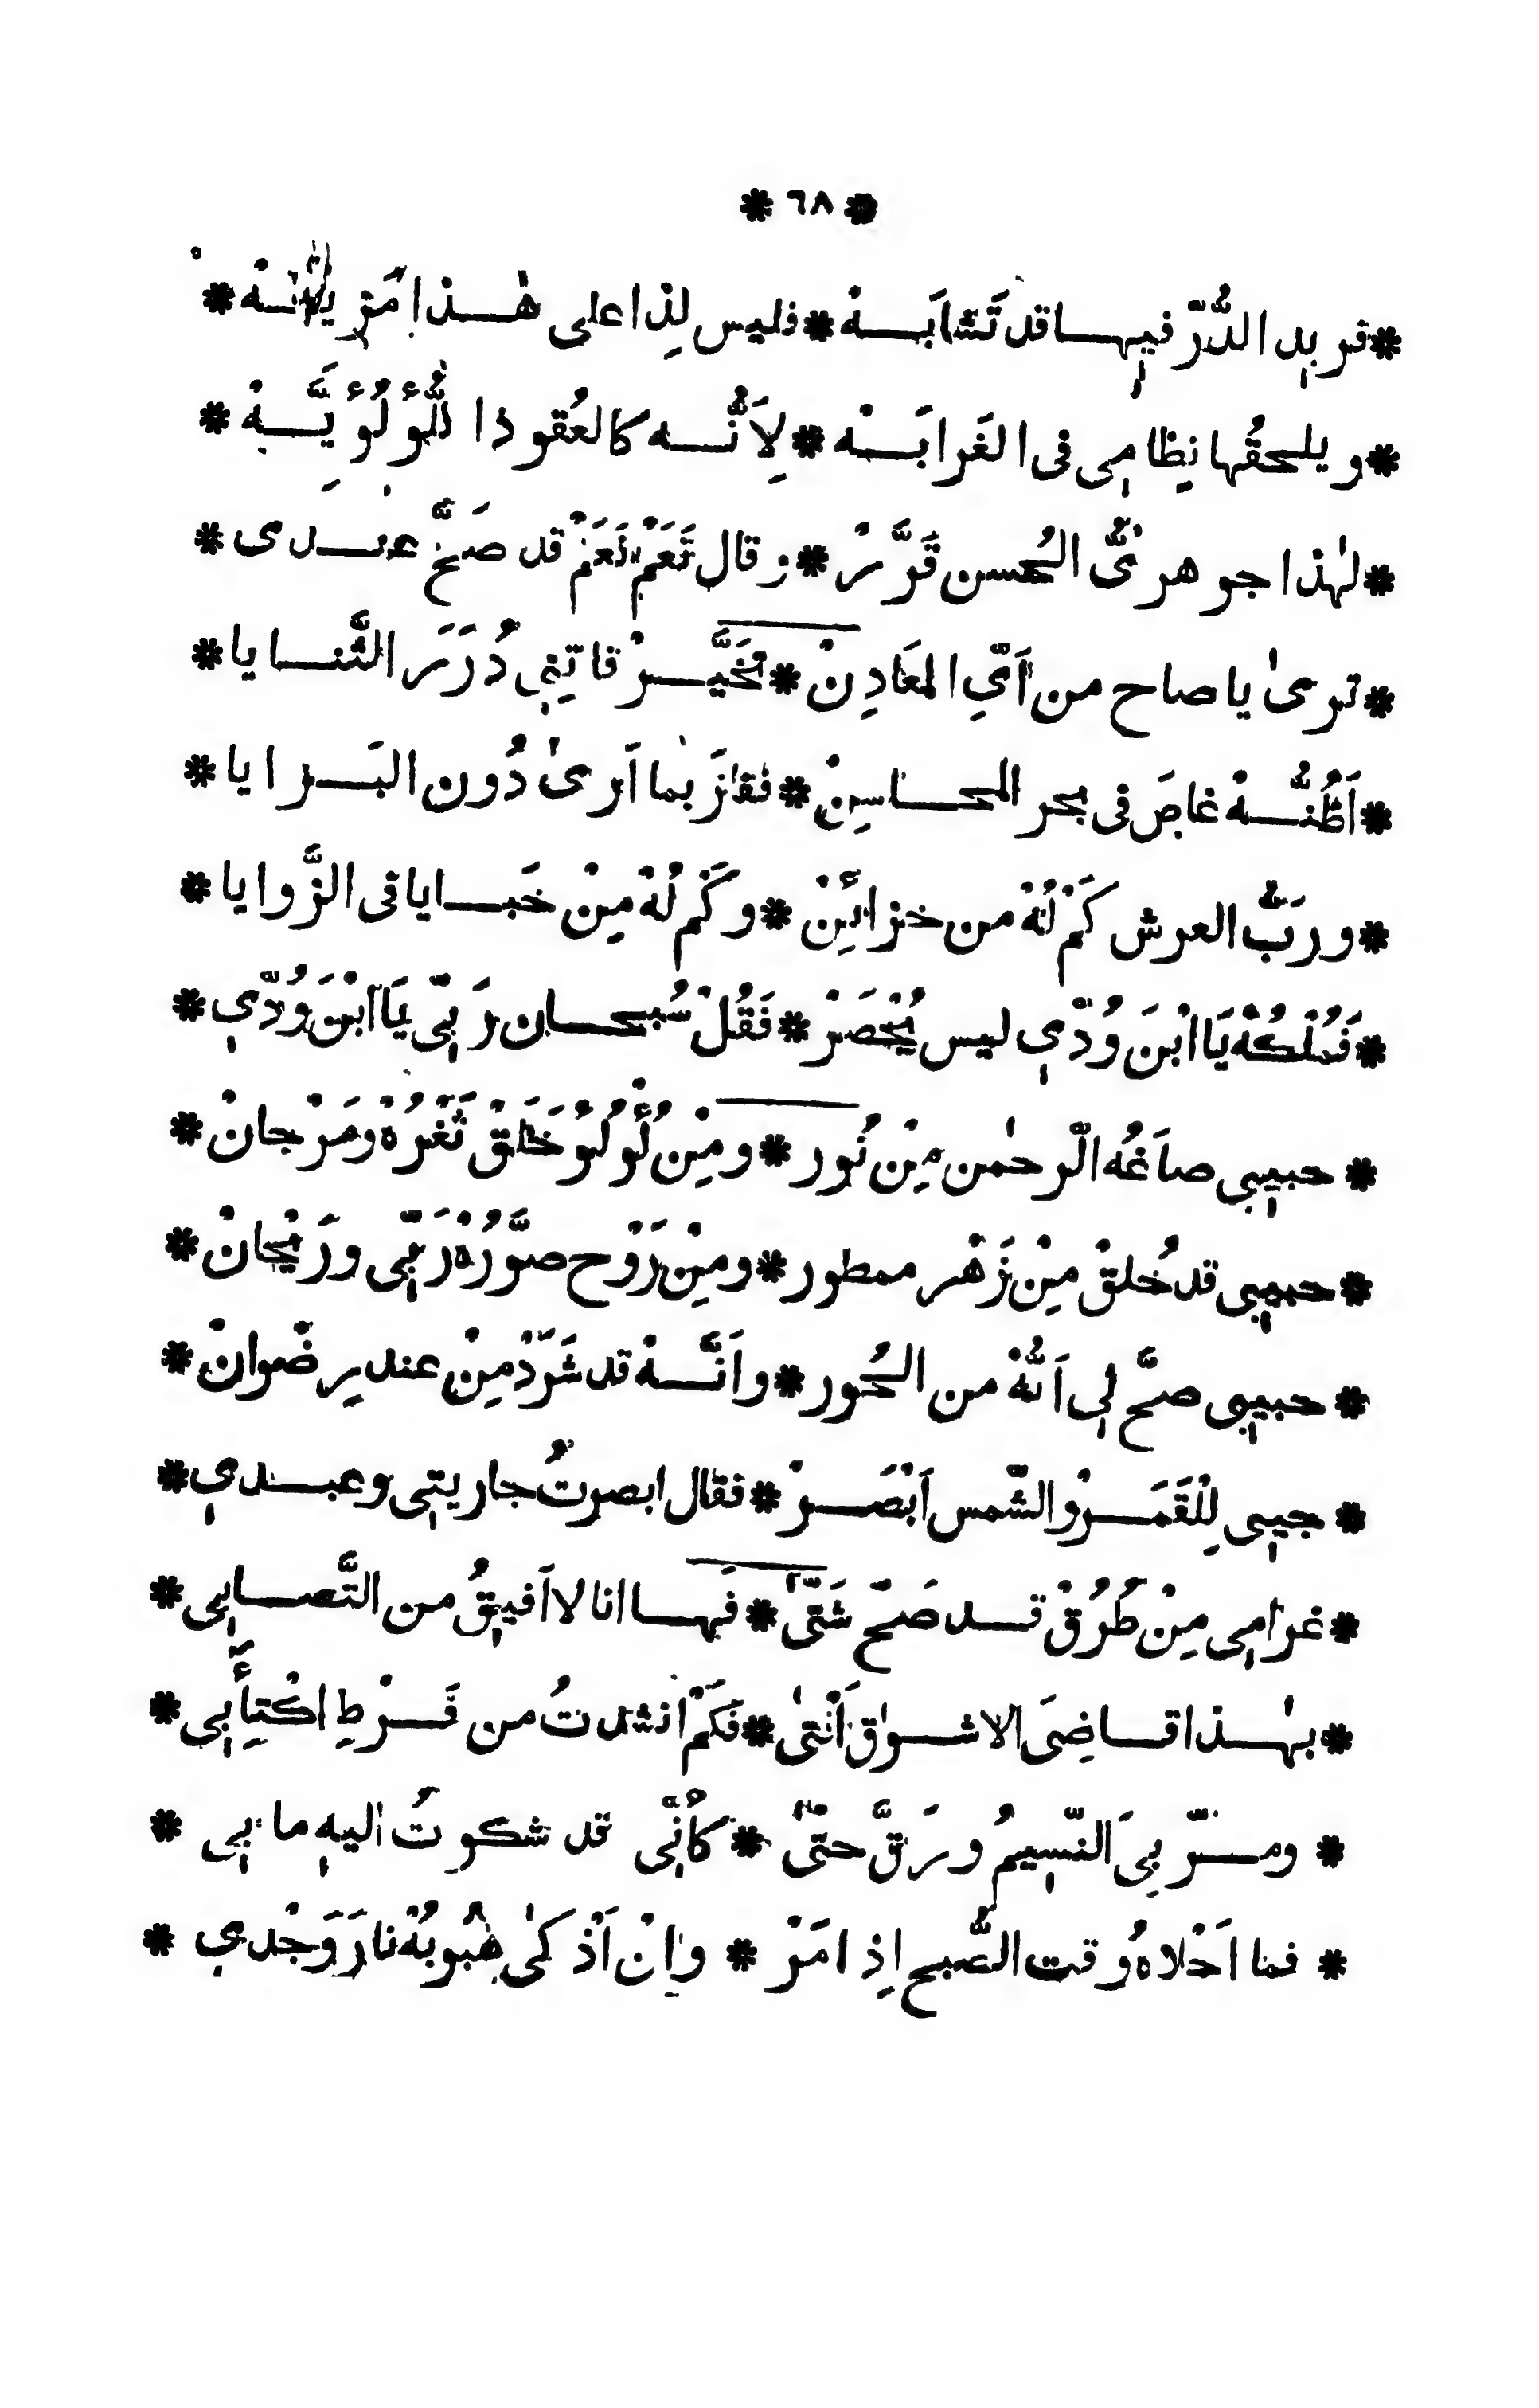 * ٦٨ *
* فريد الدُّرّ فيها قد تَشابَهْ * فليس لِذا على هٰذا مَزِيَّهْ *
* ويلحقُها نِظامِي فى الغَرابَهْ * لِاَنّه كالعُقود اللُّؤلُؤيَّهْ *
* لهٰذا جوهرىُّ الحُسن قَرَّرْ * وقال نَعَمْ نَعَمْ قد صَحَّ عندى *
* ترىٰ يا صاح من اَىِّ المَعَادِنْ * تَخَيَّرْ فاتِنِى دُرَرَ الثَّنايا *
* اَظُنُّهْ غاصَ فى بحر المحاسِنْ * ففازَ بما اَرىٰ دُون البَرايا *
* ورَبُّ العرش كَمْ لُهْ من خزائِنْ * وكَمْ لُهْ مِنْ خَبايا فى الزَّوايا *
* فَمُلْكُهْ يَا ابْنَ وُدِّي ليس يُحْصَرْ * فَقُلْ سُبحان رَبِّى يَا ابْنَ وُدِّي *
* حبيبِى صاَغُه الرّحمٰن مِنْ نُور * ومِنْ لُؤلُوْ خَلَقْ ثَغْرُهْ ومَرْجانْ *
* حبيبِى قد خُلقْ مِنْ زَهْر ممطور * ومِنْ رَوْح صوَّرُهْ رَبِّى ورَيْحانْ *
* حبيبِى صحَّ لِى اَنُّهْ من الحُور * واَنَّهْ قد شَرَدْ مِنْ عند رِضْوانْ *
* حبيبِى لِلْقَمَرْ والشّمس اَبْصَرْ * فقال ابصرتُ جاريتِى وعبدي *
* غرامِى مِنْ طُرُقْ قد صَحّ شَتّىٰ * فَها انا لا اَفيقُ من التَّصابِى *
* بهٰذا قاضِىَ الاشواق اَفْتىٰ * فكَمْ انشدتُ من فَرْطِ اكْتِئابِى *
* ومرّ بِىَ النّسِيمُ ورَقَّ حتّىٰ * كأنِّى قد شكوتُ اليهِ ما بِى *
* فما اَحْلاهُ وقت الصُّبح اِذا مَرْ * واِنْ اَذْكىٰ هُبُوبُهْ نارَ وَجْدي *